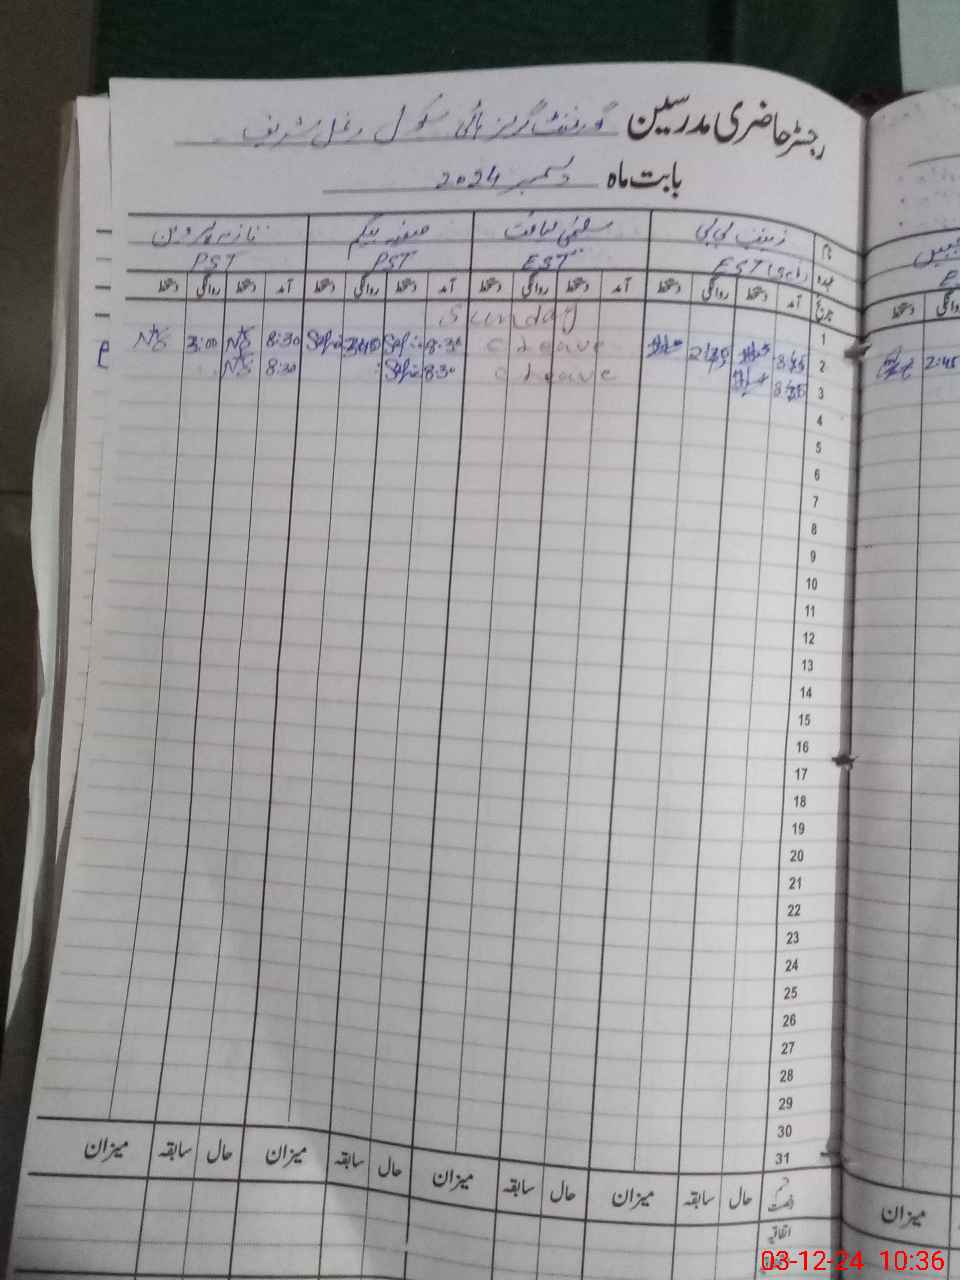 رجسٹر حاضری مدرسین گورنمنٹ گرلز ہائی سکول شریف
بابت ماہ دسمبر 2024
نام زینب بی بی سلمیٰ صفیہ بیگم نازیہ پروین
عہدہ EST EST PST PST
تاریخ آمد دستخط روانگی دستخط آمد دستخط روانگی دستخط آمد دستخط روانگی دستخط آمد دستخط روانگی دستخط
1 Sunday
2 C Leave 8:30 8:30 3:00
3 C Leave 8:30 8:30
4
5
6
7
8
9
10
11
12
13
14
15
16
17
18
19
20
21
22
23
24
25
26
27
28
29
30
31
قسم رخصت حال سابقہ میزان حال سابقہ میزان حال سابقہ میزان حال سابقہ میزان
اتفاقیہ
دستخط روانگی
2:45
میزان
03-12-24 10:36